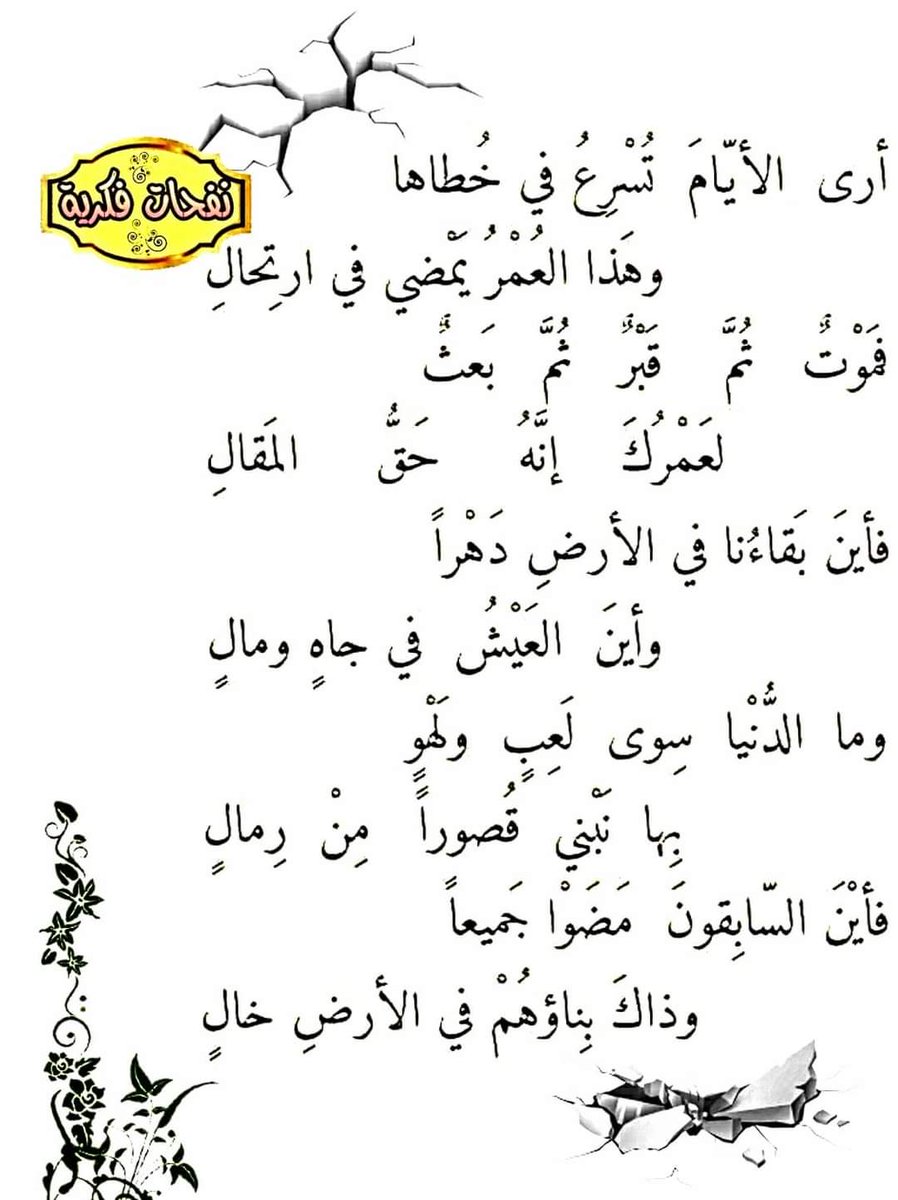 أرى الأيّامَ تُسْرِعُ في خُطاها
نفحات فكرية
وهَذا العُمْرُ يَمْضي في ارتِحالِ
فَمَوْتٌ ثُمَّ قَبْرٌ ثُمَّ بَعثٌ
لعَمْرُكَ إنَّهُ حَقُّ المَقالِ
فأينَ بَقاءُنا في الأرضِ دَهْراً
وأينَ العَيْشُ في جاهٍ ومالٍ
وما الدُّنْيا سِوى لَعِبٍ ولَهْوٍ
بِها نَبْني قُصوراً مِنْ رِمالٍ
فأيْنَ السّابِقونَ مَضَوْا جَميعاً
وذاكَ بِناؤهُمْ في الأرضِ خالٍ